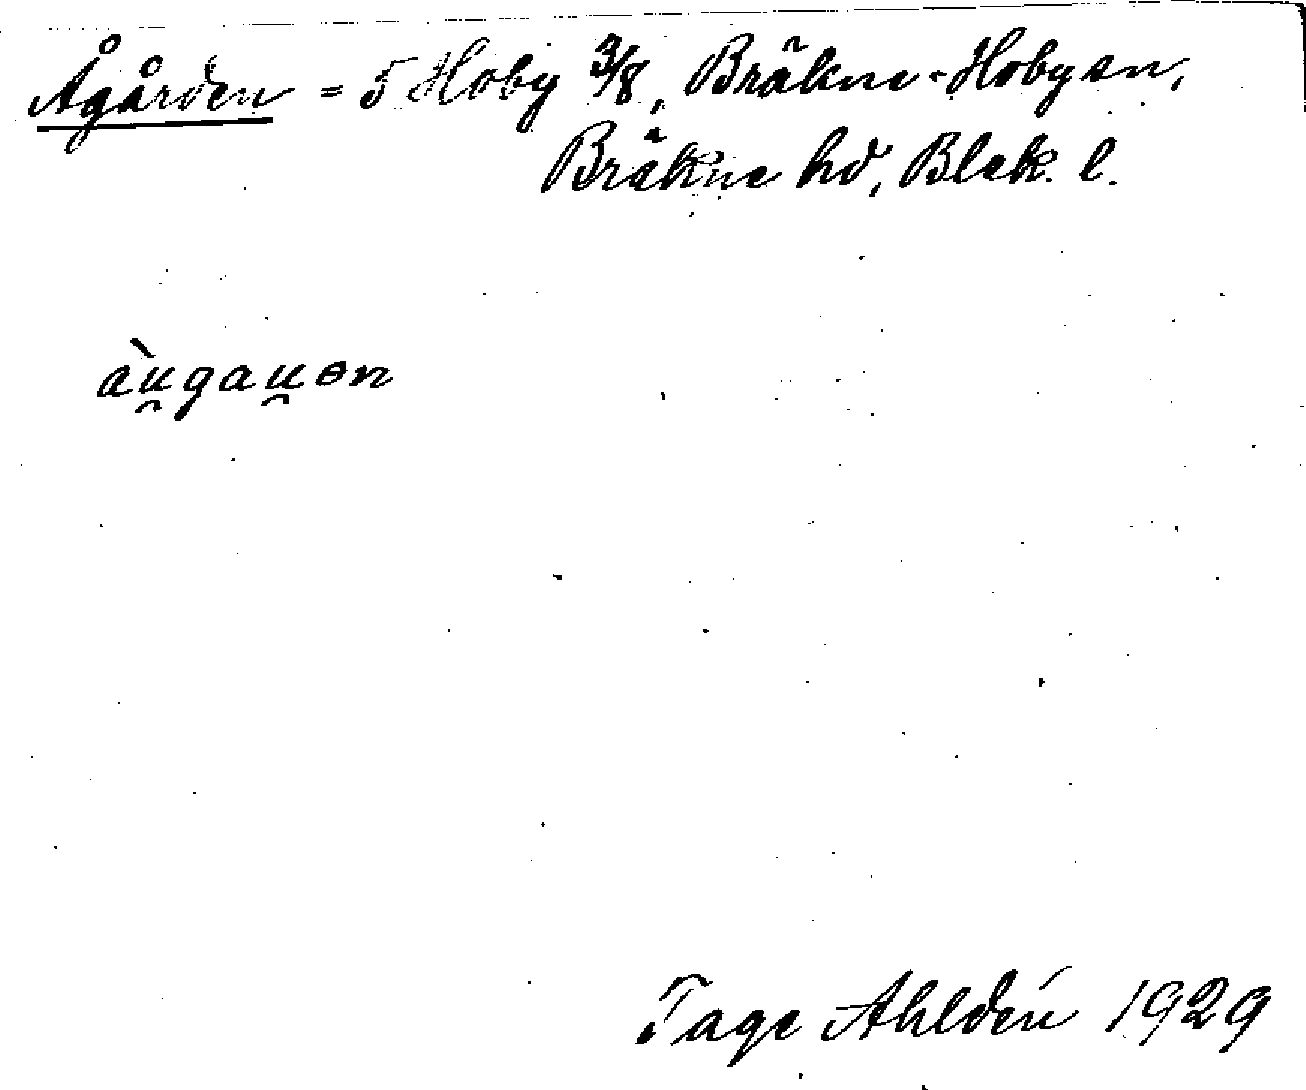 Ågården = 5 Hoby 3/8, Bräkne-Hoby sn,
Bräkne hd, Blek. l.
àu̯gau̯ɵn
Tage Ahldén 1929